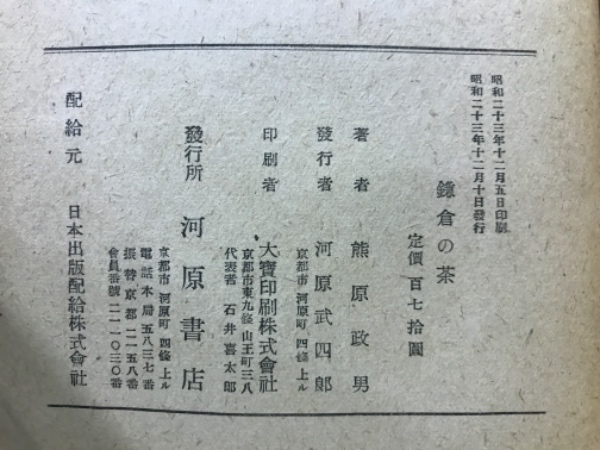 昭和二十三年十二月五日印刷
昭和二十三年十二月十日發行
鎌倉の茶
定價 百七拾圓
著者 熊原政男
發行者 河原武四郎
京都市 河原町 四條上ル
印刷者 大寶印刷株式會社
京都市東九條山王町三八
代表者 石井喜太郎
發行所 河原書店
京都市 河原町 四條上ル
電話本局五八三七番
振替京都二一五八番
會員番號二一一〇三〇番
配給元 日本出版配給株式會社